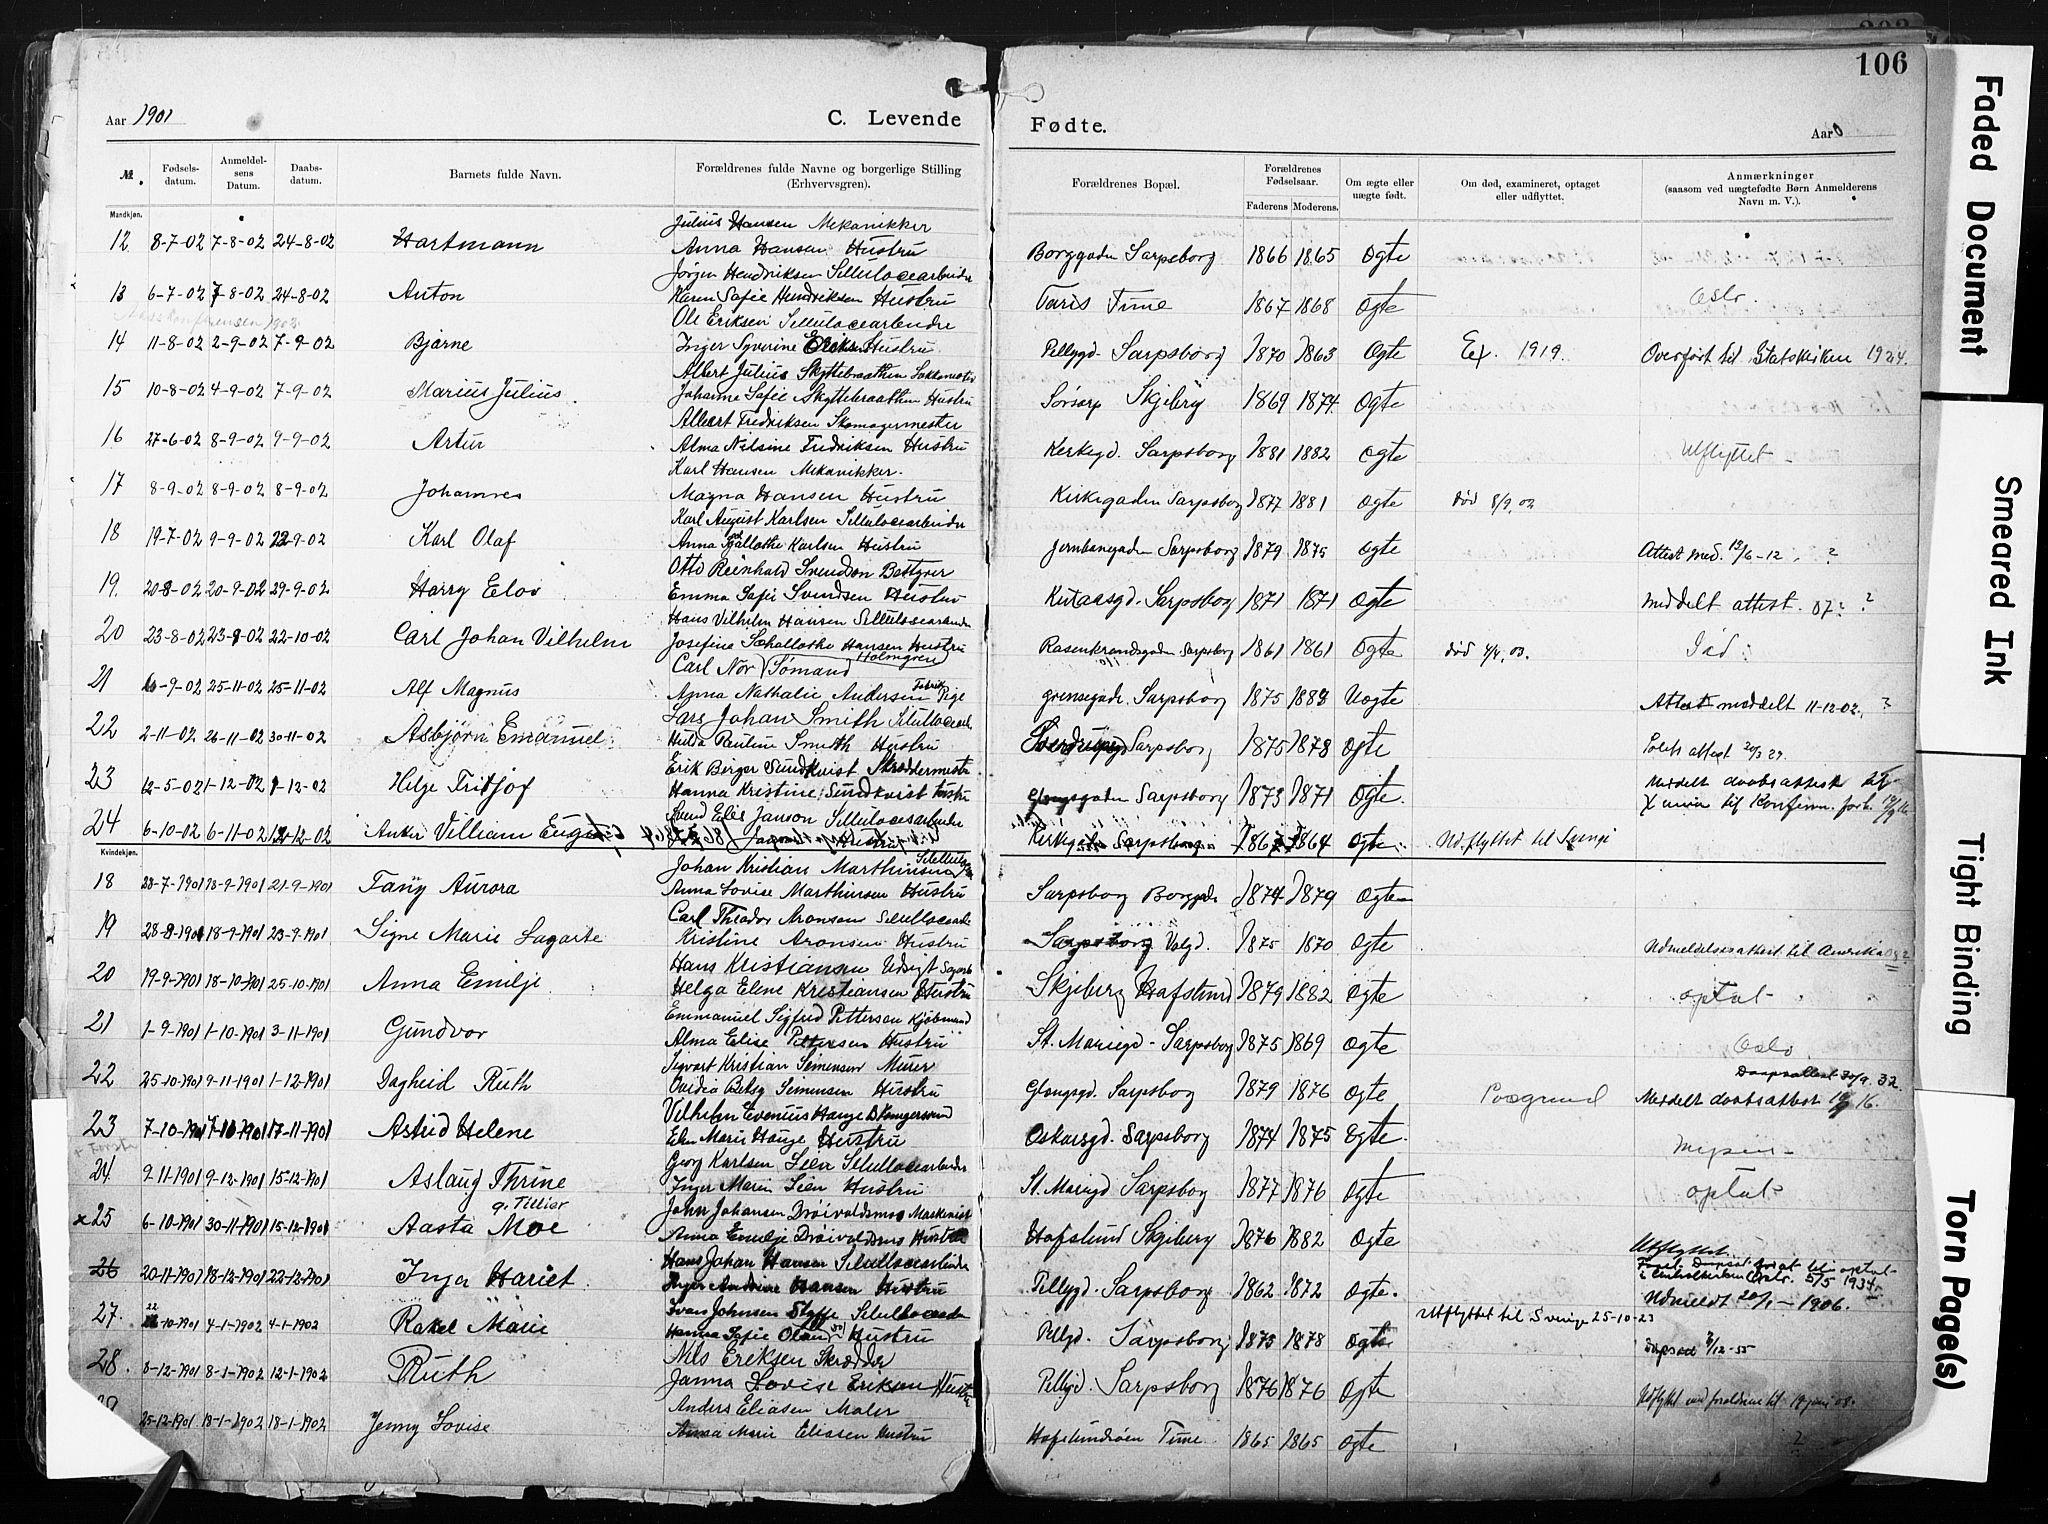 106
Aar 1901
C. Levende Fødte.
Aar 0
№.
Fødsels-datum.
Anmeldel-sens Datum.
Daabs-datum.
Barnets fulde Navn.
Forældrenes fulde Navne og borgerlige Stilling (Erhvervsgren).
Forældrenes Bopæl.
Forældrenes Fødselsaar.
Faderens Moderens.
Om ægte eller uægte født.
Om død, examineret, optaget eller udflyttet.
Anmærkninger (saasom ved uægtefødte Børn Anmelderens Navn m. V.).
Mandkjøn.
Julius Hansen Mekanikker
12 8-7-02 7-8-02 24-8-02 Hartmann Anna Hansen Hustru Borggaden Sarpsborg 1866 1865 Ogte
Jørgen Hendriksen Sellulocearbeider
13 6-7-02 7-8-02 24-8-02 Anton Karen Safie Hendriksen Hustru Taris Tune 1867 1868 Ogte Oslo.
Ole Eriksen Sellulocearbeidre
14 11-8-02 2-9-02 7-9-02 Bjarne Inger Syverine Eriksen Hustru Pellygd. Sarpsborg 1870 1863 Ogte Ex. 1919. Overført til Statskirken 1924.
Albert Julius Skyttebraathen
15 10-8-02 4-9-02 7-9-02 Marius Julius. Johanne Safie Skyttebraathen Hustru Sørsarp Skjeberg 1869 1874 Ogte
Albert Fredriksen Skomagermester
16 27-6-02 8-9-02 9-9-02 Artur Alma Nilsine Fredriksen Hustru Kerkegd. Sarpsborg 1881 1882 Ogte Utflyttet
Karl Hansen Mekanikker.
17 8-9-02 8-9-02 8-9-02 Johannes Magna Hansen Hustru Kirkegaden Sarpsborg 1877 1881 Ogte død 8/9.02
Karl August Karlsen Sellulocearbeider
18 19-7-02 9-9-02 22-9-02 Karl Olaf Anna Karlsen Hustru Jernbanegaden Sarpsborg 1879 1875 Ogte Attest med. 12/6-12. ?
Otto Reinhold Svendsen Bestyrer
19. 20-8-02 20-9-02 29-9-02 Harry Elov Emma Safie Svendsen Hustru Sarpsborg 1871 1871 Ogte meddelt attest. 07? ?
Hans Vilhelm Hansen Sellulocearbeider
20 23-8-02 23-8-02 22-10-02 Carl Johan Vilhelm Josefine Schallothe Hansen Hustru Rosenkrandsgaden Sarpsborg 1861 1861 Ogte død 4/4.03. Død.
Carl Nor (Sømand Holmgren)
21 6-9-02 25-11-02 25-11-02 Alf Magnus Anna Nathalie Andersen Fabrik Pige Grensegade Sarpsborg 1875 1883 Uogte Attest meddelt 11-12-02. ?
Lars Johan Smith
22 2-11-02 26-11-02 30-11-02 Asbjørn Emanuel. Hilda Pauline Smith Hustru Sverdrupgd Sarpsborg 1875 1878 Ogte
Erik Birger Sundkvist Skreddermester
23 12-5-02 1-12-02 1-12-02 Helge Fritjof Hanna Kristine Sundkvist Hustru Glengsgaden Sarpsborg 1873 1871 Ogte. Meddelt daabsattest
Svend Elis Janson Sellulocearbeider
24 6-10-02 6-11-02 12-12-02 Anker Villiam Hustru Kirkegaden Sarpsborg 1867 1864 Ogte. Udflyttet til
Kvindekjøn.
Johan Kristian Marthinsen
18 28-7-1901 13-9-1901 21-9-1901 Fany Aurora Anna Lovise Marthinsen Hustru Sarpsborg Borggade 1874 1879 Ogte
Carl Theodor Aronsen
19 28-8-1901 18-9-1901 23-9-1901 Signe Marie Lagarte Kristine Aronsen Hustru Sarpsborg Valgd. 1875 1870 Ogte Udmeldelsesattest til Amerika
Hans Kristiansen
20 19-9-1901 18-10-1901 25-10-1901 Anna Emilje Helga Elene Kristiansen Hustru Skjeberg Hafslund 1879 1882 Ogte optat
Emmanuel Sigfred Pettersen Kjøbmand
21 1-9-1901 1-10-1901 3-11-1901 Gundvor Alma Elise Pettersen Hustru St. Mariegd. Sarpsborg 1875 1869 Ogte Oslo
Sigvart Kristian Simensen Murer
22 25-10-1901 9-11-1901 1-12-1901 Dagheid Ruth Ovidia Betsy Simensen Hustru Glengsgd. Sarpsborg 1879 1876 Ogte Daapsattest 30/9.32. Meddelt daabsattest
Vilhelm Evenius Hauge
23 7-10-1901 17-11-1901 Astrid Helene Elen Marie Hauge Hustru Oskarsgd. Sarpsborg 1874 1875 Ogte. mysen
Georg Karlsen Lien Sellulocearbeider
24. 9-11-1901 9-12-1901 15-12-1901 Aslaug Thrine Inger Marie Lien Hustru St. Mariegd Sarpsborg 1877 1876 Ogte optat
g. Tillier John Johansen Maskinist
x25 6-10-1901 30-11-1901 15-12-1901 Aasta Moe Anna Emilje Hustru Hafslund Skjeberg 1876 1882 Ogte
Utflyttet
Hans Johan Hansen Sellulocearbeider
26 20-11-1901 18-12-1901 22-12-1901 Inga Hariet. Inger Andrine Hansen Hustru Pellygd. Sarpsborg 1862 1872 Ogte. Udmeldt 20/1-1906.
27. 22-10-1901 4-1-1902 4-1-1902 Rakel Marie Hanna Safie Hustru Pellgd. Sarpsborg 1873 1878 Ogte Utflyttet til Sverige 25-10-23
Nils Eriksen Skrædder
28. 8-12-1901 8-1-1902 12-1-1902 Ruth Janna Lovise Eriksen Hustru Pellygd. Sarpsborg 1876 1876 Ogte
Anders Eliasen Maler
29 25-12-1901 13-1-1902 18-1-1902 Jenny Lovise Anna Marie Eliasen Hustru Hafslundsøen Tune 1865 1865 Ogte ?
Faded Document
Smeared Ink
Tight Binding
Torn Page(s)